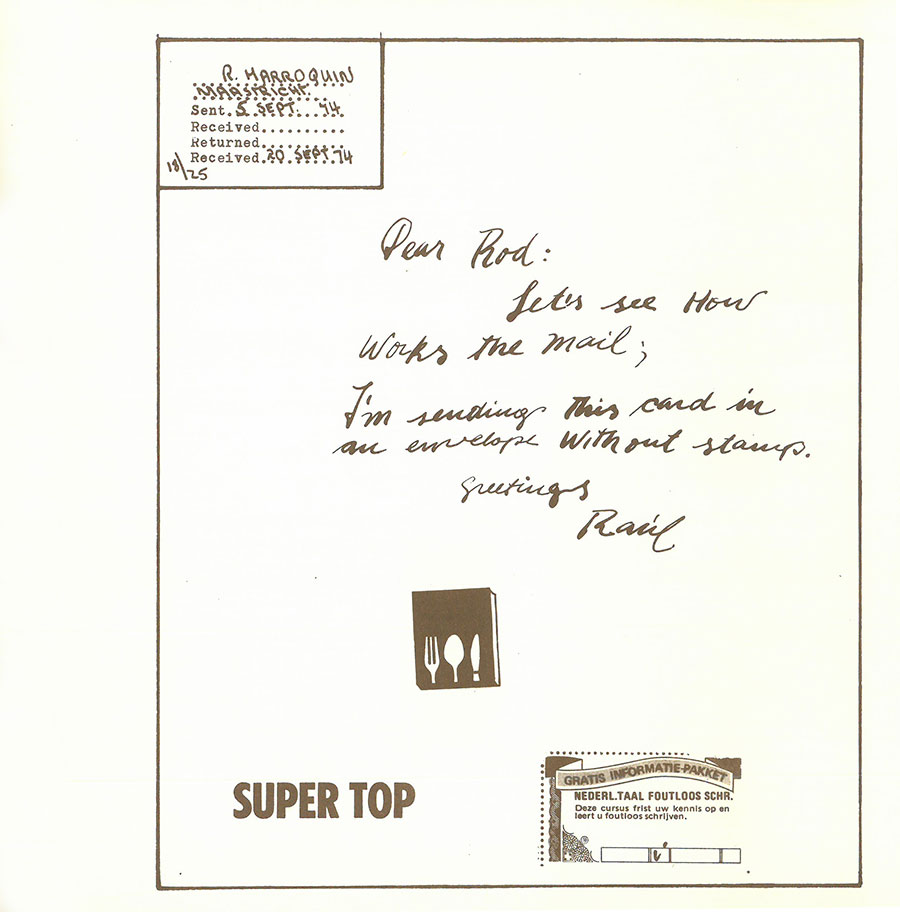 R. MARROQUIN
MAASTRICHT.
Sent. 5 SEPT. 74
Received..........
Returned..........
Received. 20 SEPT. 74
18/25
Dear Rod:
Let's see How
Works the mail;
I'm sending this card in
an envelope without stamp.
Greetings
Raúl
SUPER TOP
GRATIS INFORMATIE-PAKKET
NEDERL.TAAL FOUTLOOS SCHR.
Deze cursus frist uw kennis op en
leert u foutloos schrijven.